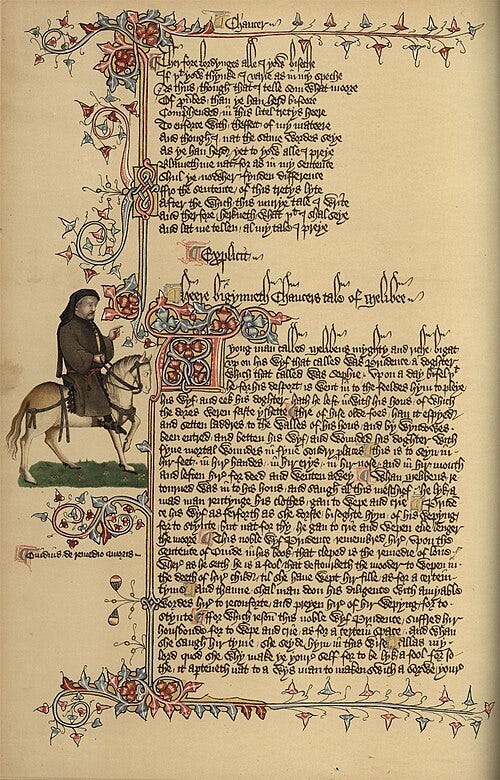 Chaucer
Therfore lordynges alle I yow biseche
If þt yow thynke I varie as in my speche
As thus though that I telle som what moore
Of prouerbes than ye han herd bifoore
Comprehended in this litel tretys heere
To enforce with theffect of my mateere
And though I nat the same wordes seye
As ye han herd yet to yow alle I preye
Blameth me nat for as in my sentence
Shul ye nowher fynden difference
Fro the sentence of this tretys lyte
After the which this murye tale I write
And therfore herkneth what þt I shal seye
And lat me tellen al my tale I preye
Explicit
Heere bigynneth Chaucers tale of Melibee
A yong man called Melibeus myghty and riche bigat
vp on his wyf that called was Prudence a doghter
which that called was Sophie Vpon a day bifel þt
he for his desport is went in to the feeldes hym to pleye
his wyf and eek his doghter hath he left in with his hous of which
the dores weren faste yshette Thre of hise olde foes han it espyed
and setten laddres to the walles of his hous and by wyndowes
been entred and betten his wyf and wounded his doghter with
fyue mortal woundes in fyue sondry places This is to seyn in
hir feet in hir handes in hir erys in hir nose and in hir mouth
and leften hir for deed and wenten awey Whan Melibeus re
torned was in to his hous and saugh al this meschief he lyk a
mad man rentynge his clothes gan to wepe and crie Prude
ce his wyf as ferforth as she dorste bisoghte hym of his wepyng
for to stynte but nat for thy he gan to crie and wepen euere lenger
the moore This noble wyf Prudence remembred hir vpon the
sentence of Ouide in his book that cleped is the remedie of loue
Where as he seith he is a fool that destourbeth the mooder to wepen in
the deeth of hir child til she haue wept hir fille as for a certein
tyme and thanne shal man doon his diligence with amyable
wordes hir to reconforte and preyen hir of hir wepyng for to
stynte For which reson this noble wyf Prudence suffred hir
housbonde for to wepe and crie as for a certein space and whan
she saugh hir tyme she seyde hym in this wise Allas my
lord quod she why make ye your self for to be lyk a fool for so
the it aperteneth nat to a wys man to maken swich a sorwe youre
Ouidius de remedio amoris